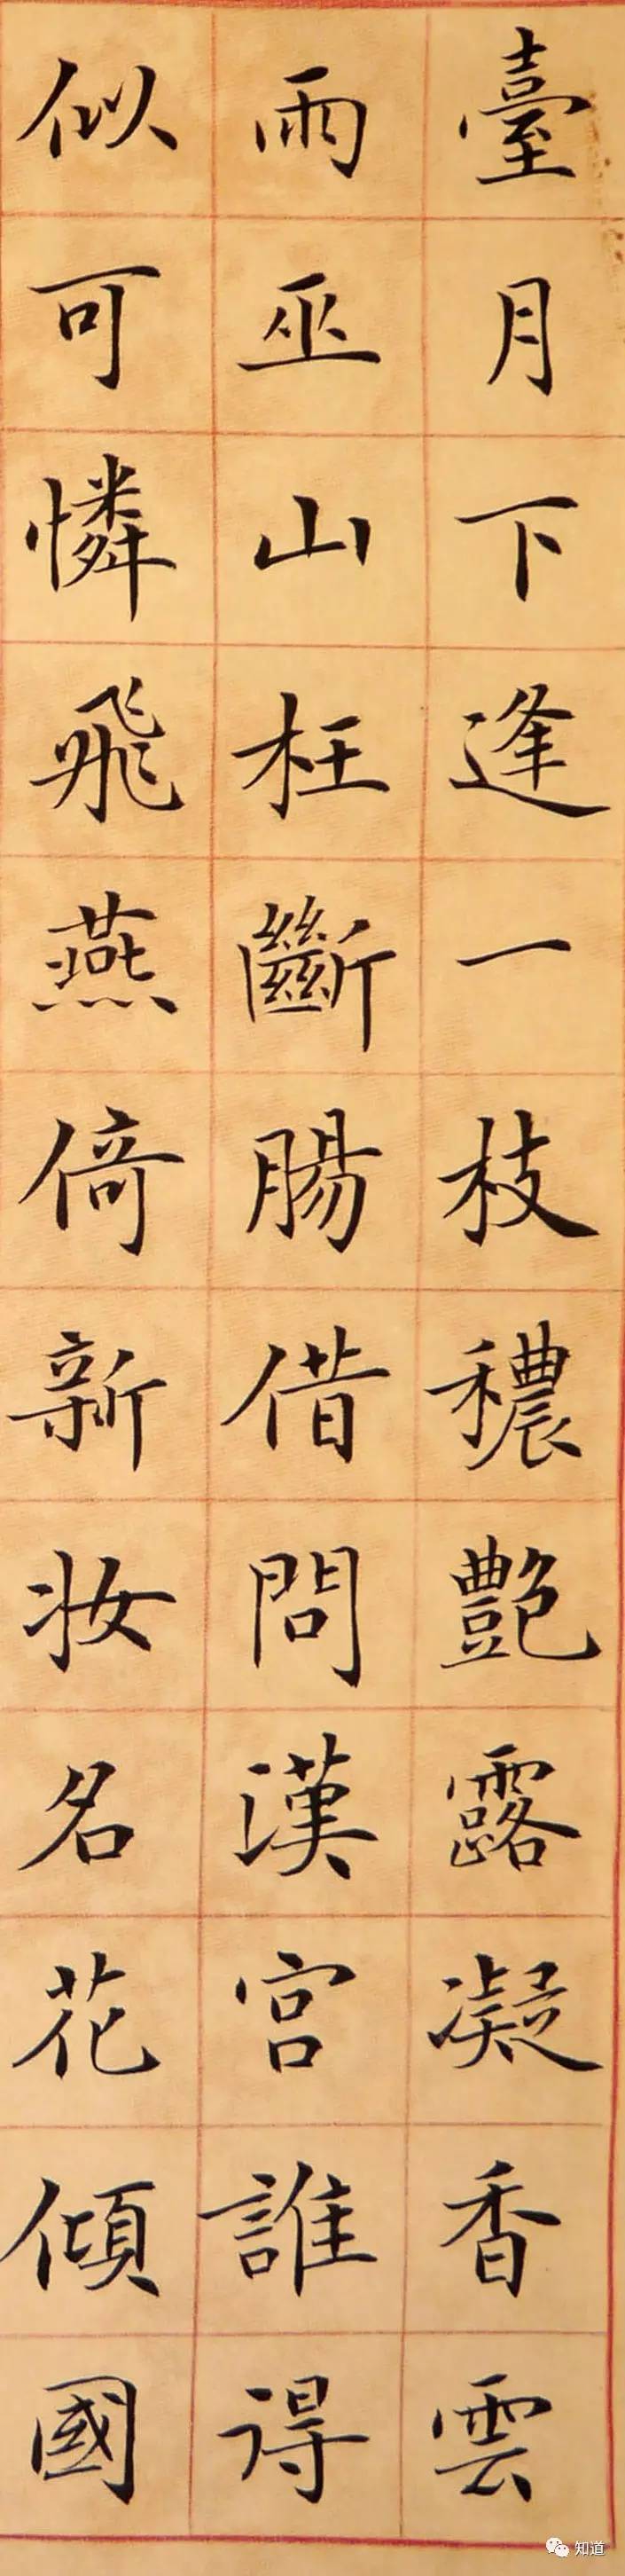 臺月下逢一枝穠艷露凝香雲
雨巫山枉斷腸借問漢宮誰得
似可憐飛燕倚新妝名花傾國
知道